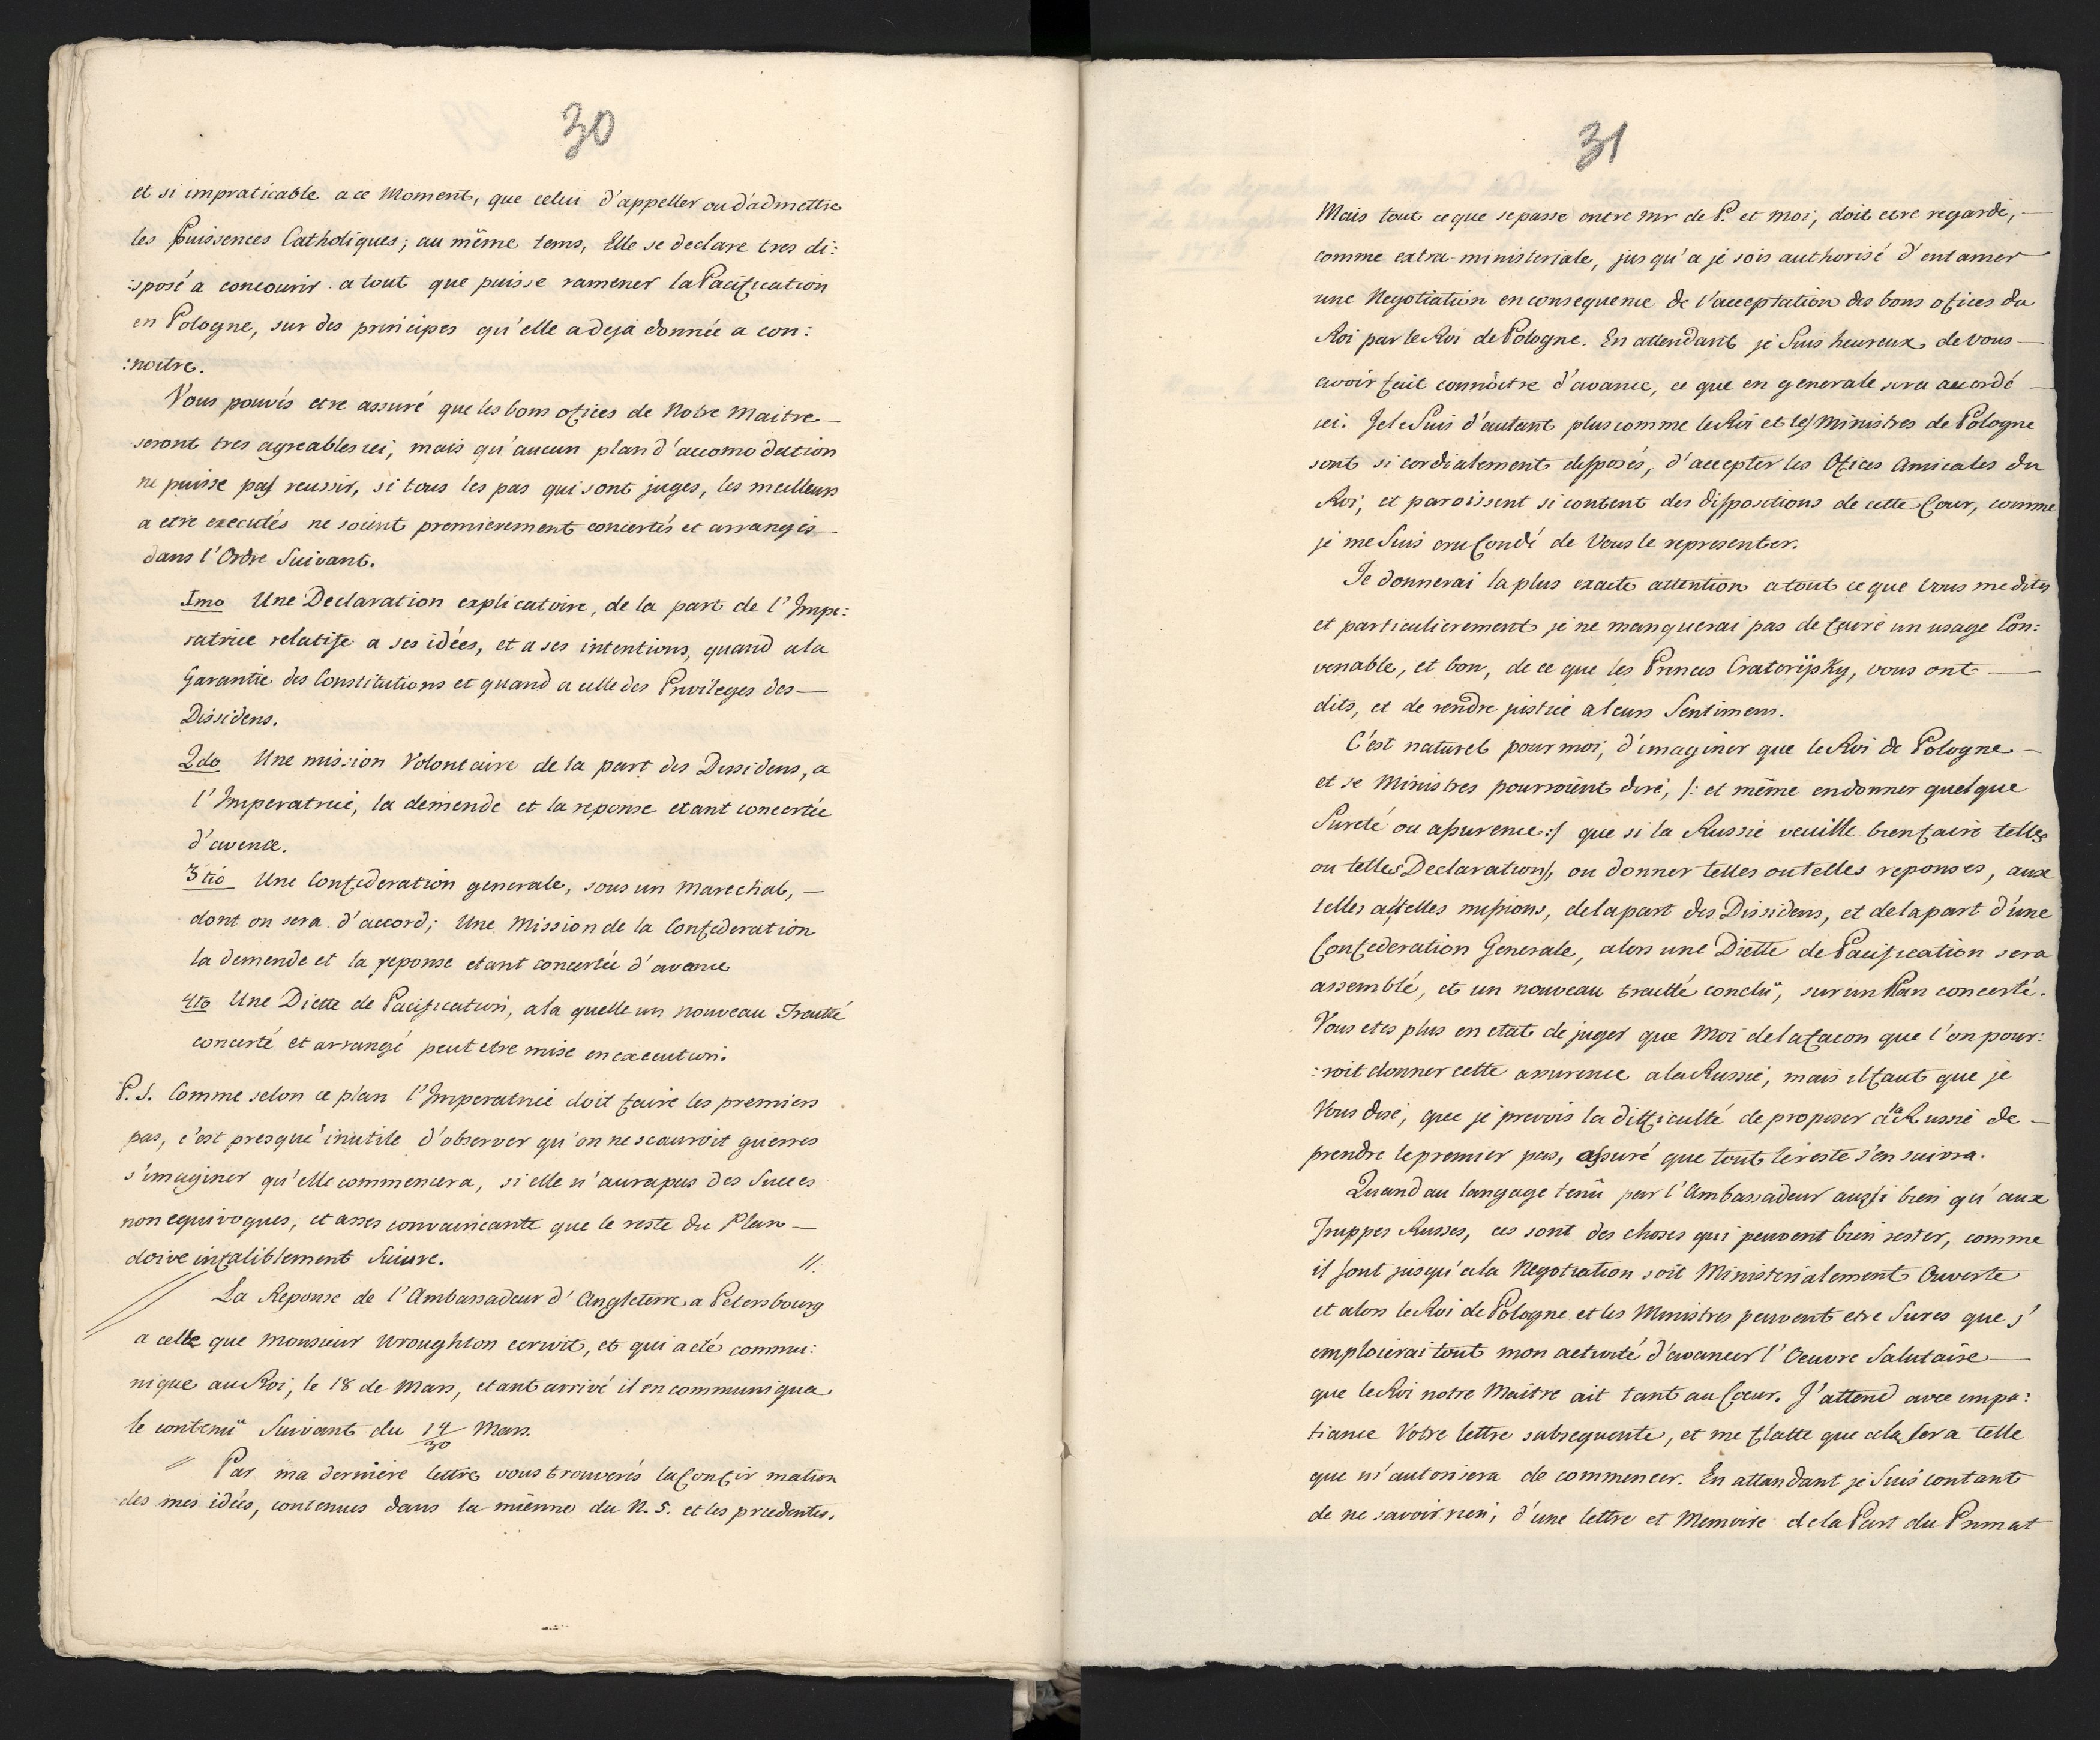 30
et si impraticable a ce Moment, que celui d'appeller ou d'admettre
les Puissences Catholiques; au même tems, Elle se declare tres di:
:sposé a concourir a tout que puisse ramener la Pacification
en Pologne, sur des principes qu'elle a deja donnée a con:
:noitre.
Vous pouvés etre assuré que les bons offices de Notre Maitre
seront tres agreables ici, mais qu'aucun plan d'accomodation
ne puisse pas reussir, si tous les pas qui sont juges, les meilleurs
a etre executés ne soient premierement concertés et arrangés
dans l'Ordre Suivant.
Imo Une Declaration explicatoire, de la part de l'Impe:
ratrice relatife a ses idées, et a ses intentions, quand a la
Garantie des Constitutions et quand a celle des Privileges des
Dissidens.
2do Une mission Volontaire de la part des Dissidens, a
l'Imperatrice, la demende et la reponse etant concertée
d'avence.
3tio Une Confederation generale, sous un Marechal,
dont on sera d'accord; Une Mission de la Confederation
la demende et la reponse etant concertée d'avance
4to Une Diette de Pacification, a la quelle un nouveau Traitté
concerté et arrangé peut etre mise en execution.
P.S. Comme selon ce plan l'Imperatrice doit faire les premiers
pas, c'est presque inutile d'observer qu'on ne scauroit guerres
s'imaginer qu'elle commencera, si elle n'aura pas des Succes
non equivoques, et asses convaincante que le reste du Plan
doive infaliblement Suivre. //.
La Reponse de l'Ambassadeur d'Angleterre a Petersbourg
a celle que Monsieur Wroughton ecrivit, et qui a été commu:
nique au Roi, le 18 de Mars, etant arrivé il en communiqua
le contenü Suivant du 14/30 Mars.
Par ma derniere lettre vous trouverés la Confirmation
des mes idées, contenues dans la mienne du N. 5. et les precedentes.
31
Mais tout ce que se passe entre Mr de P. et moi, doit etre regardé,
comme extra-ministeriale, jusqu'a je sois authorisé d'entamer
une Negotiation en consequence de l'acceptation des bons offices du
Roi par le Roi de Pologne. En attendant je Suis heureux de vous
avoir fait connoitre d'avance, ce que en generale sera accordé
ici. Je le Suis d'autant plus comme le Roi et les Ministres de Pologne
sont si cordialement disposés, d'accepter les Offices Amicales du
Roi, et paroissent si content des dispositions de cette Cour, comme
je me Suis cru fondé de Vous le representer.
Je donnerai la plus exacte attention a tout ce que Vous me dites
et particulierement je ne manquerai pas de faire un usage Con:
venable, et bon, de ce que les Princes Cratorijsky, vous ont
dits, et de rendre justice a leurs Sentimens.
C'est naturel pour moi, d'imaginer que le Roi de Pologne
et se Ministres pourroient dire, /: et même en donner quelque
Sureté ou assurence :/ que si la Russie veuille bien faire telles
ou telles Declarations, ou donner telles ou telles reponses, aux
telles et telles missions, de la part des Dissidens, et de la part d'une
Confederation Generale, alors une Diette de Pacification sera
assemblé, et un nouveau traitté conclü, sur un Plan concerté.
Vous etes plus en etat de juger que Moi de la facon que l'on pour:
:roit donner cette assurence a la Russie, mais il faut que je
Vous dise, que je prevois la difficulté de proposer à la Russie de
prendre le premier pas, assuré que tout le reste s'en suivra.
Quand au langage tenû par l'Ambassadeur aussi bien qu'aux
Truppes Russes, ces sont des choses qui peuvent bien rester, comme
il sont jusqu'a la Negotiation soit Ministerialement Ouverte
et alors le Roi de Pologne et les Ministres peuvent etre Sures que j'
emploierai tout mon activité d'avancer l'Oeuvre Salutaire
que le Roi notre Maitre ait tant au Coeur. J'attend avec impa:
tiance Votre lettre subsequente, et me flatte que cela sera telle
que m'autorisera de commencer. En attandant je Suis contant
de ne savoir rien, d'une lettre et Memoire de la Part du Primat